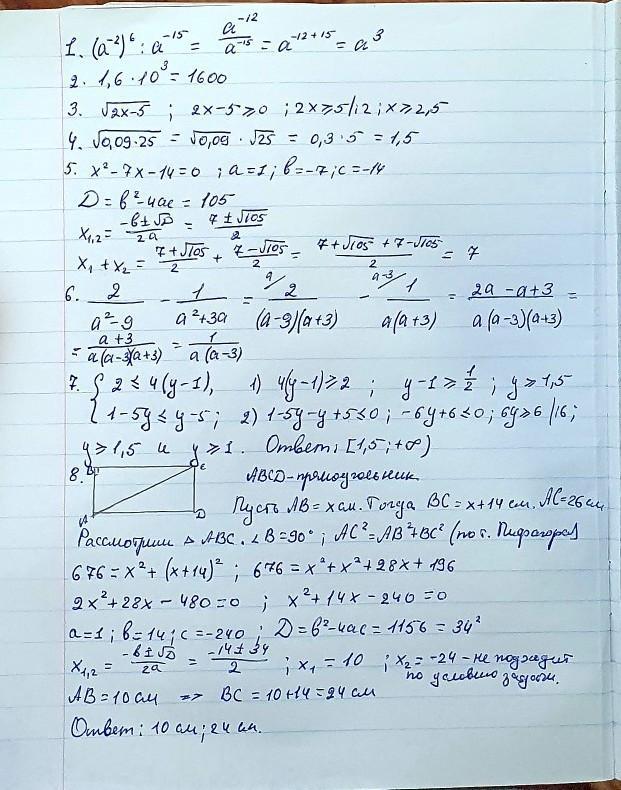 1. (a⁻²)⁶ : a⁻¹⁵ = a⁻¹²/a⁻¹⁵ = a⁻¹²⁺¹⁵ = a³
2. 1,6 · 10³ = 1600
3. √(2x-5) ; 2x-5 ≥ 0 ; 2x ≥ 5 |:2 ; x ≥ 2,5
4. √(0,09·25) = √0,09 · √25 = 0,3 · 5 = 1,5
5. x² - 7x - 14 = 0 ; a = 1 ; b = -7 ; c = -14
D = b² - 4ac = 105
x₁,₂ = (-b ± √D)/2a = (7 ± √105)/2
x₁ + x₂ = (7+√105)/2 + (7-√105)/2 = (7+√105 + 7-√105)/2 = 7
6. 2/(a²-9) - 1/(a²+3a) = a/ 2/((a-9)(a+3)) - a-3/ 1/(a(a+3)) = (2a - a+3)/(a(a-3)(a+3)) =
= (a+3)/(a(a-3)(a+3)) = 1/(a(a-3))
7. { 2 ≤ 4(y-1), 1) 4(y-1) ≥ 2 ; y-1 ≥ 1/2 ; y ≥ 1,5
1-5y ≤ y-5 ; 2) 1-5y-y+5 ≤ 0 ; -6y+6 ≤ 0 ; 6y ≥ 6 |:6 ;
y ≥ 1,5 и y ≥ 1. Ответ: [1,5 ; +∞)
8. B C ABCD - прямоугольник
Пусть AB = x см. Тогда BC = x+14 см. AC = 26 см
A D
Рассмотрим △ ABC. ∠B = 90° ; AC² = AB² + BC² (по т. Пифагора)
676 = x² + (x+14)² ; 676 = x² + x² + 28x + 196
2x² + 28x - 480 = 0 ; x² + 14x - 240 = 0
a = 1 ; b = 14 ; c = -240 ; D = b² - 4ac = 1156 = 34²
x₁,₂ = (-b ± √D)/2a = (-14 ± 34)/2 ; x₁ = 10 ; x₂ = -24 - не подходит
по условию задачи.
AB = 10 см => BC = 10 + 14 = 24 см
Ответ: 10 см ; 24 см.